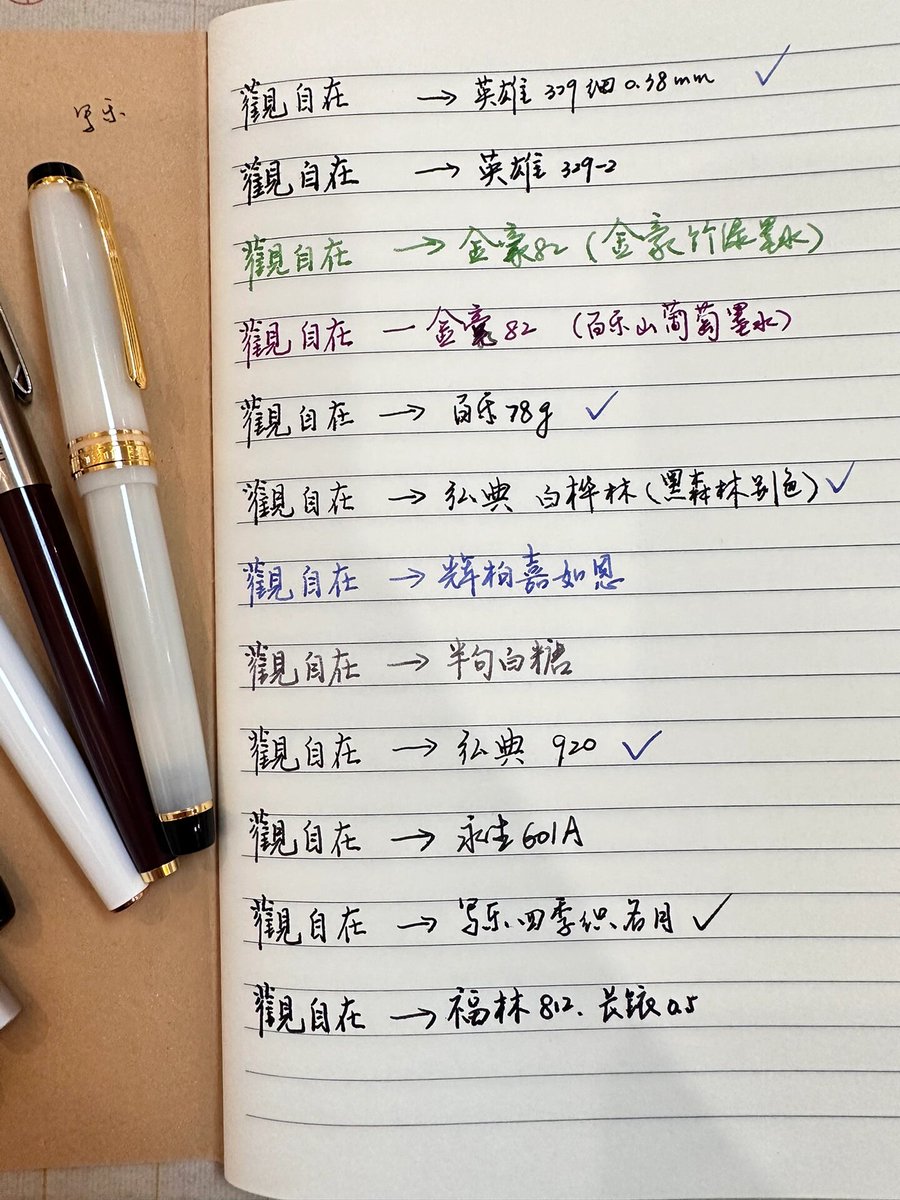 写乐
觀自在 → 英雄 329 细 0.38mm ✓
觀自在 → 英雄 329-2
觀自在 → 金豪82（金豪竹海墨水）
觀自在 — 金豪82（百乐山葡萄墨水）
觀自在 → 百乐78g ✓
觀自在 → 弘典 白桦林（黑森林别色）✓
觀自在 → 辉柏嘉如恩
觀自在 → 半句白糖
觀自在 → 弘典 920 ✓
觀自在 → 永生601A
觀自在 → 写乐四季织名月 ✓
觀自在 → 福林812. 长铱0.5